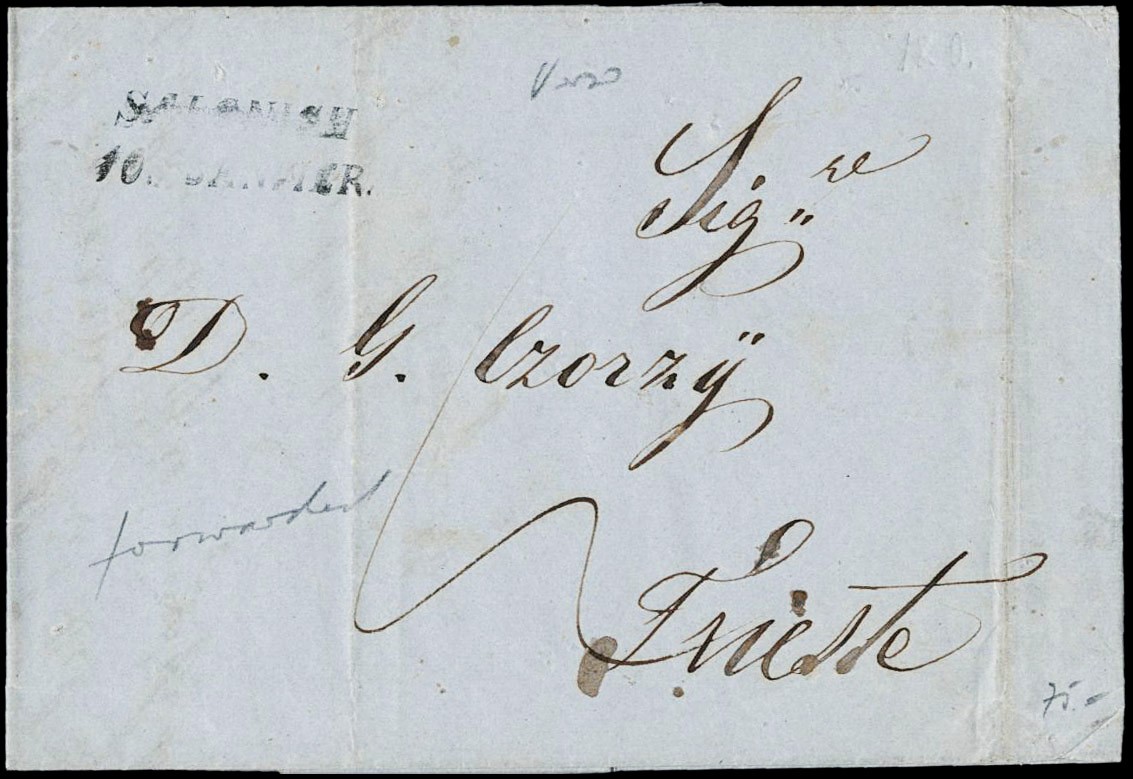 SALONICH
10. JANNER.
Sig.re
D. G. Czorzÿ
forwarded
Trieste
75.-